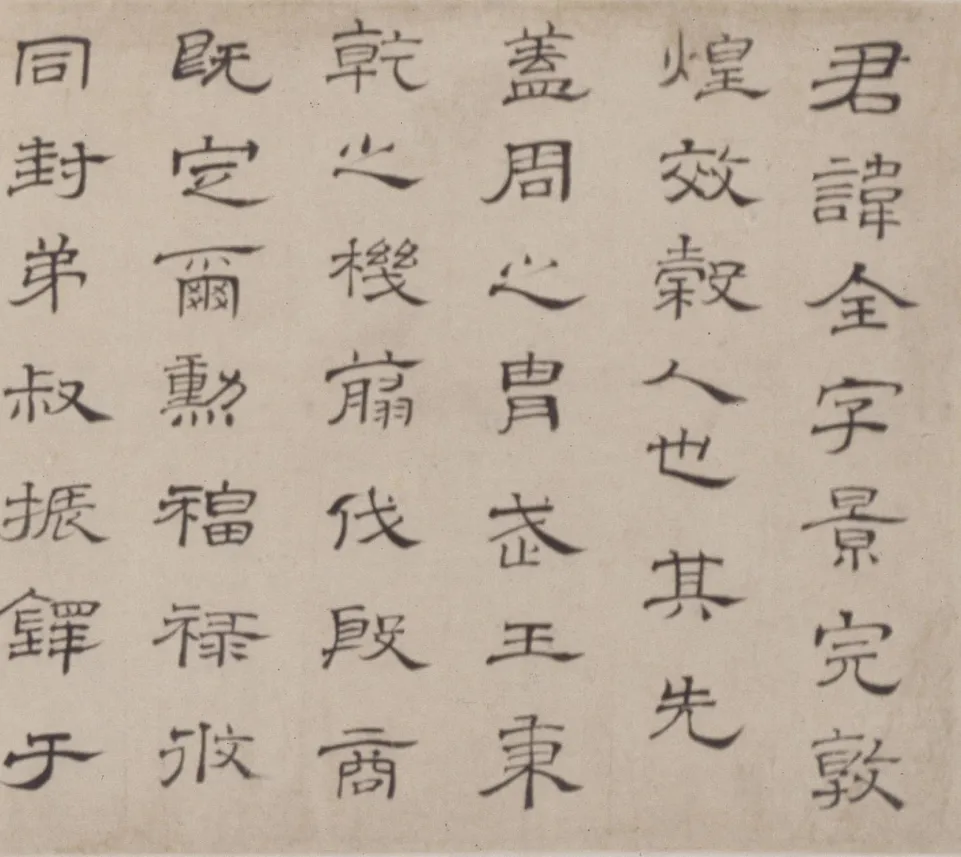 君諱全字景完敦
煌效穀人也其先
蓋周之胄武王秉
乾之機翦伐殷商
既定爾勲福祿攸
同封弟叔振鐸于